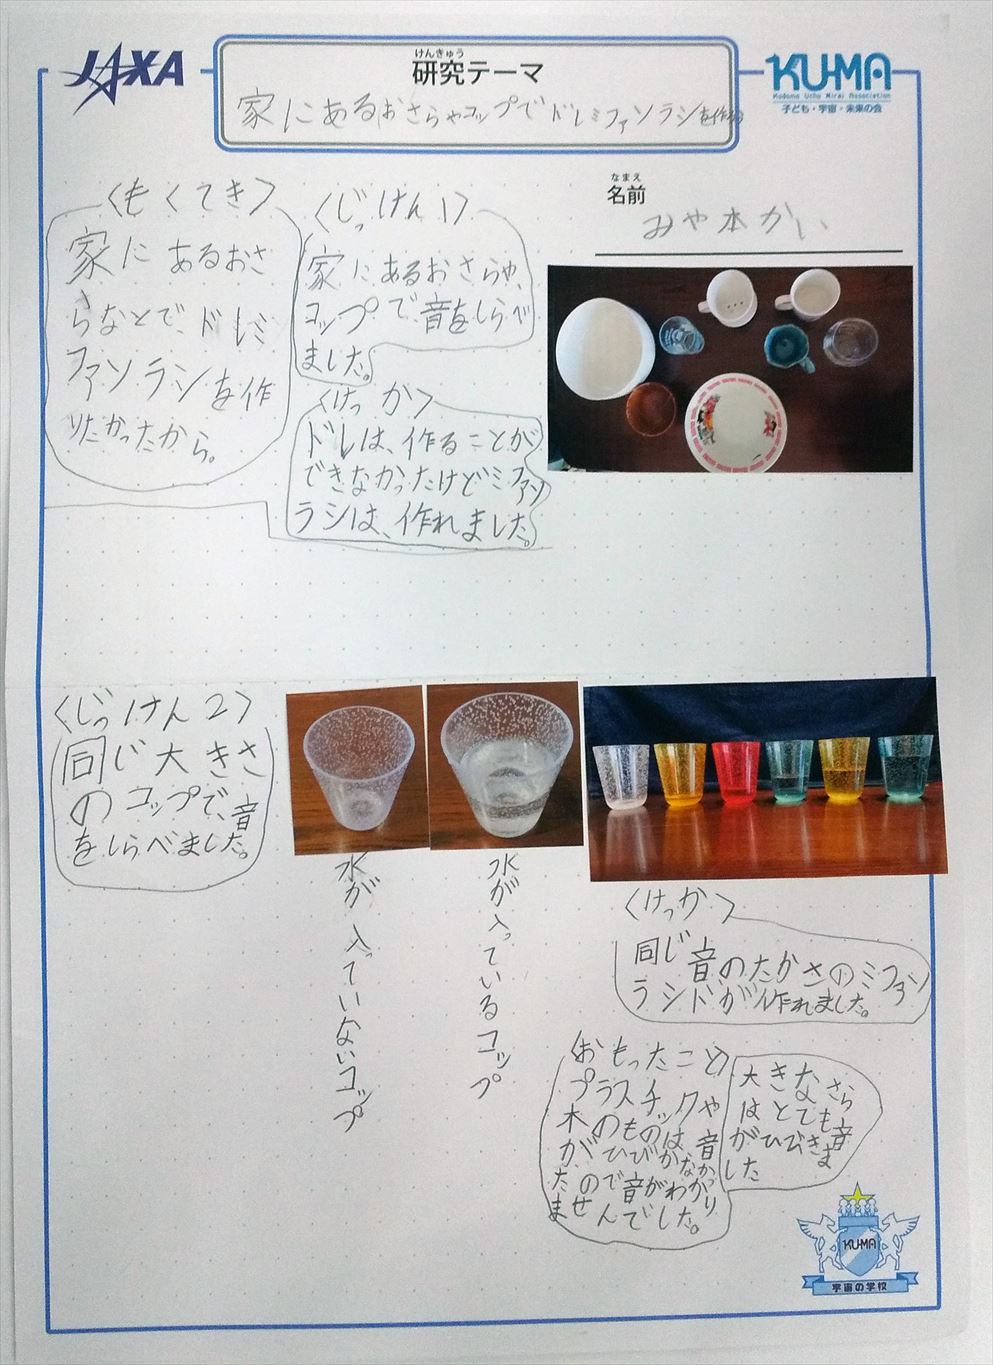 JAXA
けんきゅう
研究テーマ
家にあるおさらやコップでドレミファソラシを作る
KU-MA
Kodomo Uchu Mirai Association
子ども・宇宙・未来の会
なまえ
名前
みや本かい
〈もくてき〉
家にあるおさ
らなとで、ドレミ
ファソラシを作
りたかったから。
〈じっけん1〉
家にあるおさらや、
コップで、音をしらべ
ました。
〈けっか〉
ドレは、作ることが
できなかったけどミファソ
ラシは、作れました。
〈じっけん2〉
同じ大きさ
のコップで、音
をしらべました。
水が入っていないコップ
水が入っているコップ
〈けっか〉
同じ音のたかさのミファソ
ラシドが作れました。
〈おもったこと〉
プラスチックや
木のものは音
がひびかなかっ
たので音がわかり
ませんでした。
大きなさら
はとても音
がひびきま
した
KU-MA
宇宙の学校